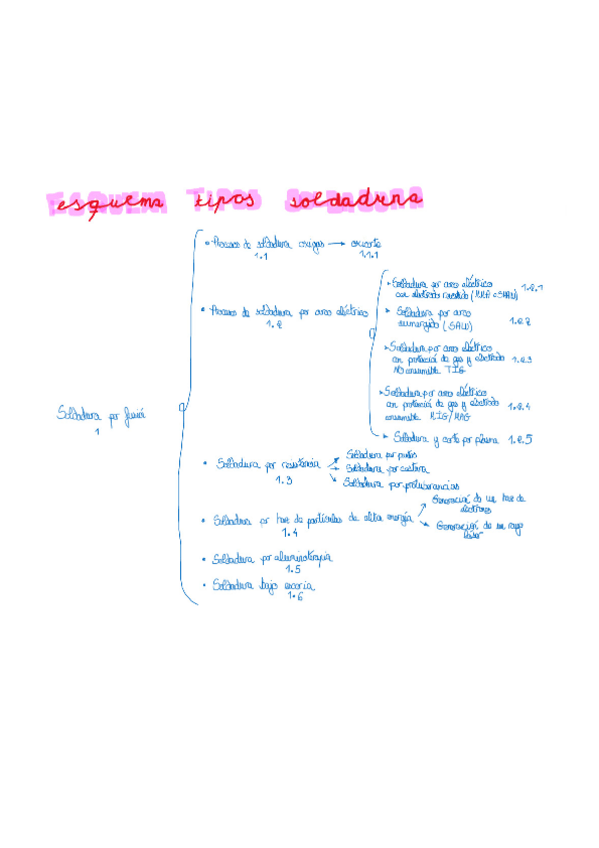 esquema tipos soldadura
• Proceso de soldadura oxigas → oxicorte
1.1 1.1.1
• Proceso de soldadura por arco eléctrico
1.2
➤ Soldadura por arco eléctrico
con electrodo revestido (MMA o SMAW) 1.2.1
➤ Soldadura por arco
sumergido (SAW) 1.2.2
➤ Soldadura por arco eléctrico
con protección de gas y electrodo 1.2.3
NO consumible TIG
➤ Soldadura por arco eléctrico
con protección de gas y electrodo 1.2.4
consumible MIG/MAG
➤ Soldadura y corte por plasma 1.2.5
Soldadura por fusión
1
• Soldadura por resistencia
1.3
Soldadura por puntos
Soldadura por costura
Soldadura por protuberancias
• Soldadura por haz de partículas de alta energía
1.4
Generación de un haz de
electrones
Generación de un rayo
láser
• Soldadura por aluminoterapia
1.5
• Soldadura bajo escoria
1.6